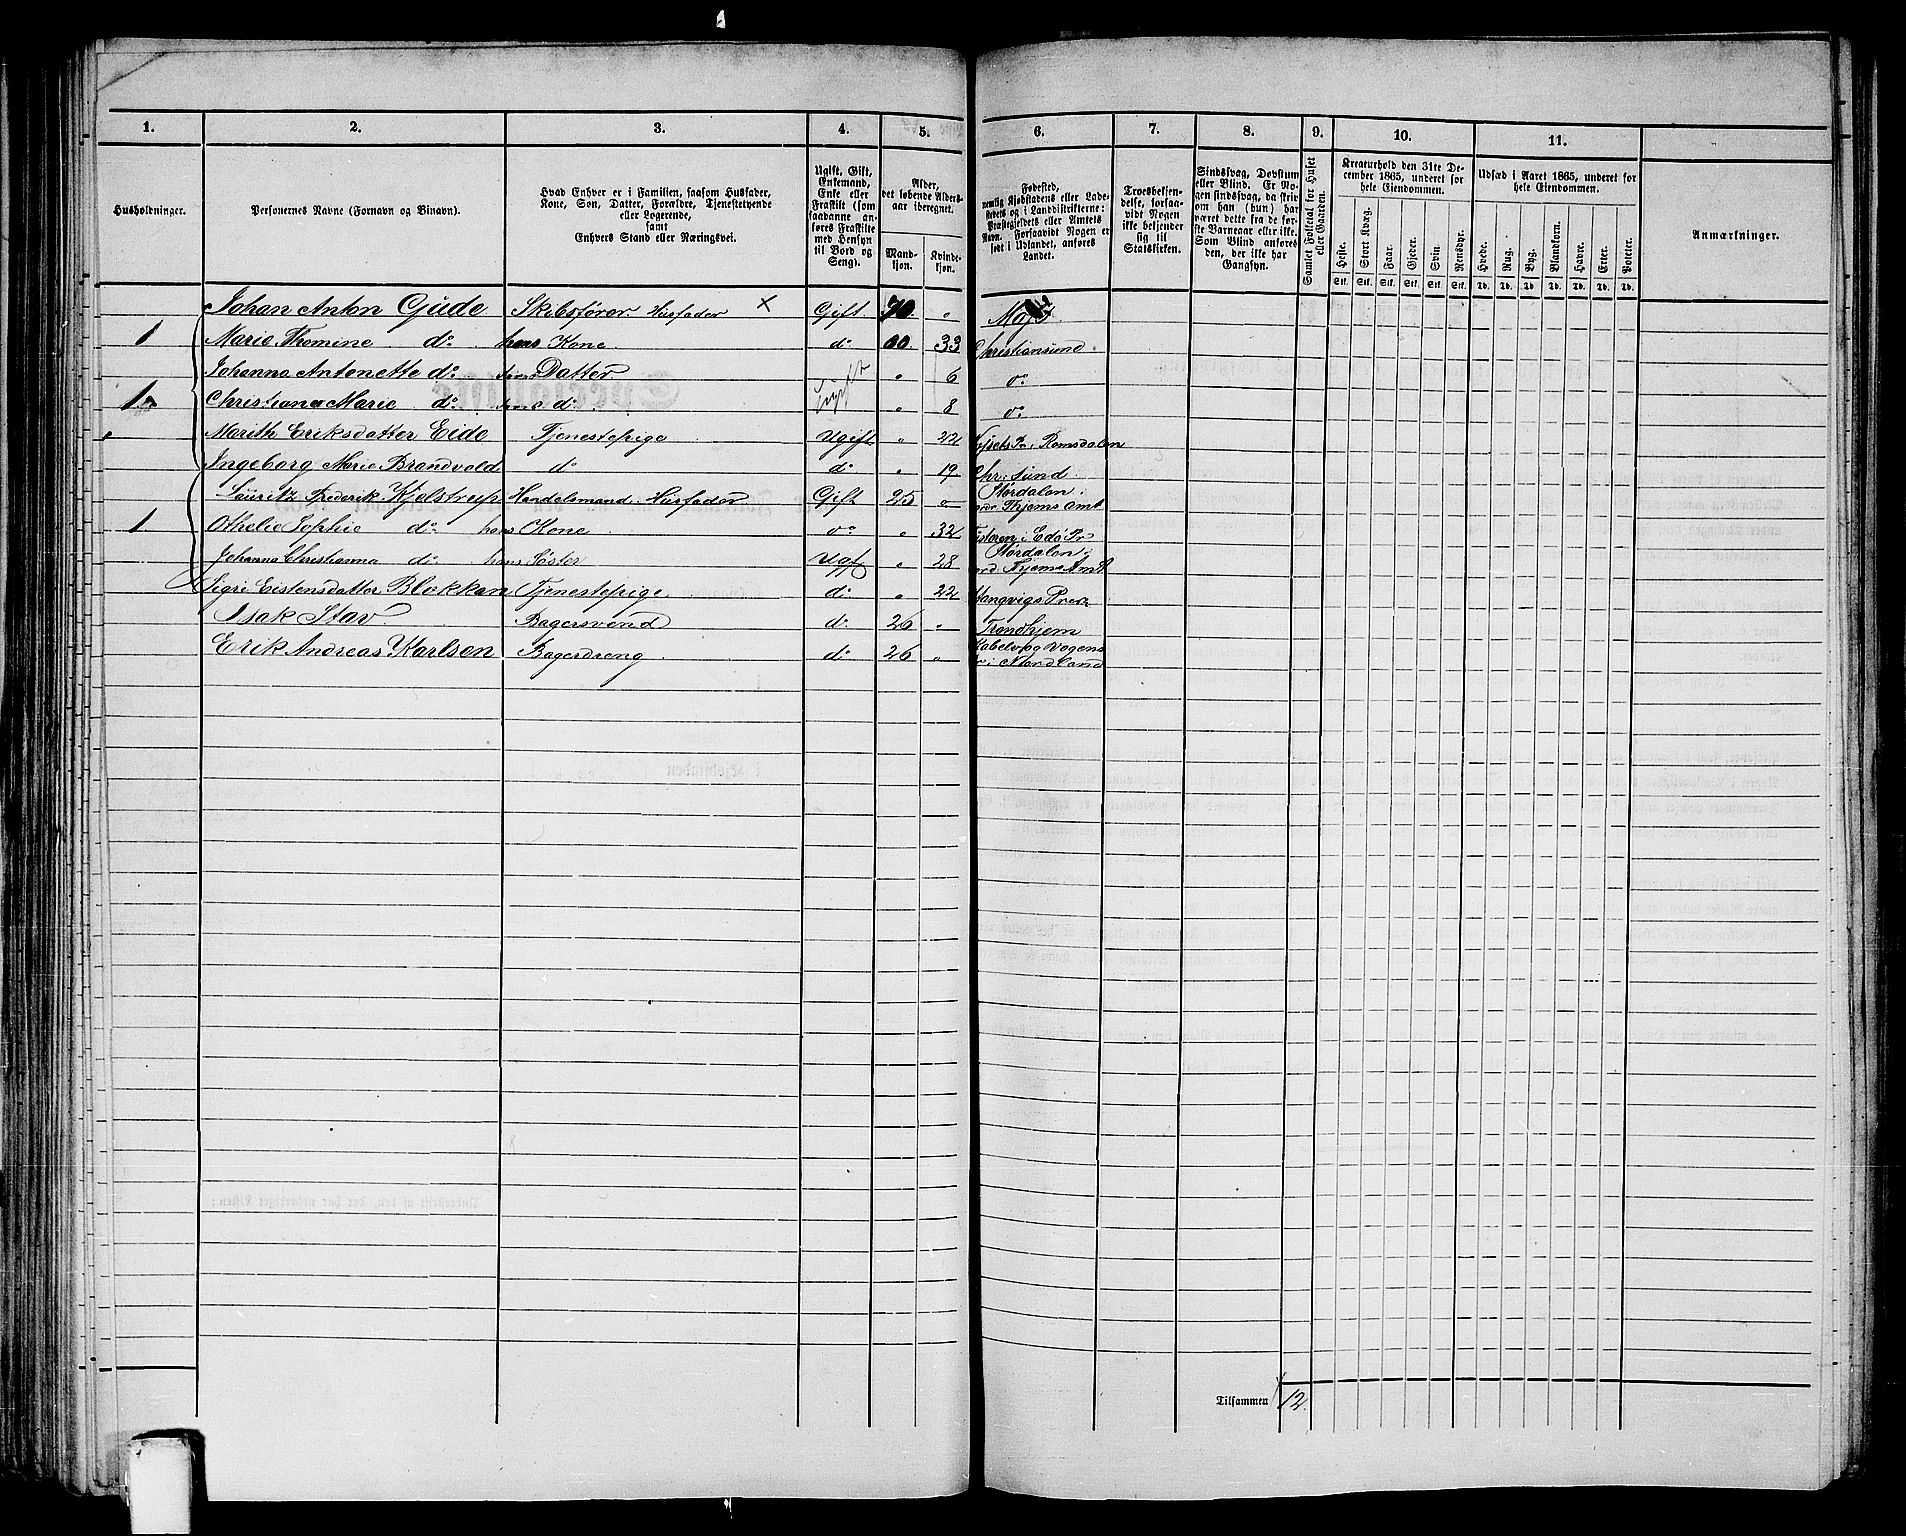 1. 2. 3. 4. 5. 6. 7. 8. 9. 10. 11.
Husholdninger.
Personernes Navne (Fornavn og Binavn).
Hvad Enhver er i Familien, saasom Husfader,
Kone, Søn, Datter, Forældre, Tjenestetyende
eller Logerende,
samt
Enhvers Stand eller Næringsvei.
Ugift, Gift,
Enkemand,
Enke eller
Fraskilt (som
saadanne an-
føres Fraskilte
med Hensyn
til Bord og
Seng).
Alder,
det løbende Alders-
aar iberegnet.
Mand-
kjøn.
Kvinde-
kjøn.
Fødested,
nemlig Kjøbstadens eller Lade-
stedets og i Landdistrikterne:
Præstegjeldets eller Amtets
Navn. Forsaavidt Nogen er
født i Udlandet, anføres
Landet.
Troesbekjen-
delse, forsaa-
vidt Nogen
ikke bekjender
sig til
Statskirken.
Sindssvag, Døvstum
eller Blind. Er No-
gen sindssvag, da skriv
om han (hun) har
været dette fra de før-
ste Barneaar eller ikke.
Som Blind anføres
den, der ikke har
Gangsyn.
Samlet Folketal for Huset
eller Gaarden.
Kreaturhold den 31te De-
cember 1865, underet for
hele Eiendommen.
Heste. Stort Kvæg. Faar. Gjeder. Svin. Rensdyr.
Stk. Stk. Stk. Stk. Stk. Stk.
Udsæd i Aaret 1865, underet for
hele Eiendommen.
Hvede. Rug. Byg. Blandkorn. Havre. Erter. Poteter.
Td. Td. Td. Td. Td. Td. Td.
Anmærkninger.
Johan Anton Gude Skibsfører. Husfader × Gift 70 "
1 Marie Thomine do hans Kone do 33 Christiansund
Johanna Antonette do hans Datter " 6 do
1 Christiana Marie do hans do " 8 do
Marith Eriksdatter Eide Tjenestepige Ugift " 22 Pr. Romsdalen
Ingeborg Marie Brandvold do do " 19 Chr: sund
Lauritz Frederik Kjelstrup Handelsmand. Husfader Gift 25 " Størdalen:
Thjems Amt
1 Othelie Sophie do hans Kone do " 32 Edø Pr
Johanna Christianna do hans Søster Ugft " 28 Størdalen:
Thjems Amt
Sigri Eistensdatter Blekken Tjenestepige do " 22 Stangvigs Præ
Isak Stav Bagersvend do 26 " Trondhjem
Erik Andreas Karlsen Bagerdreng do 26 " Kabelv og Vogens
Pr: i Nordland
Tilsammen 12.